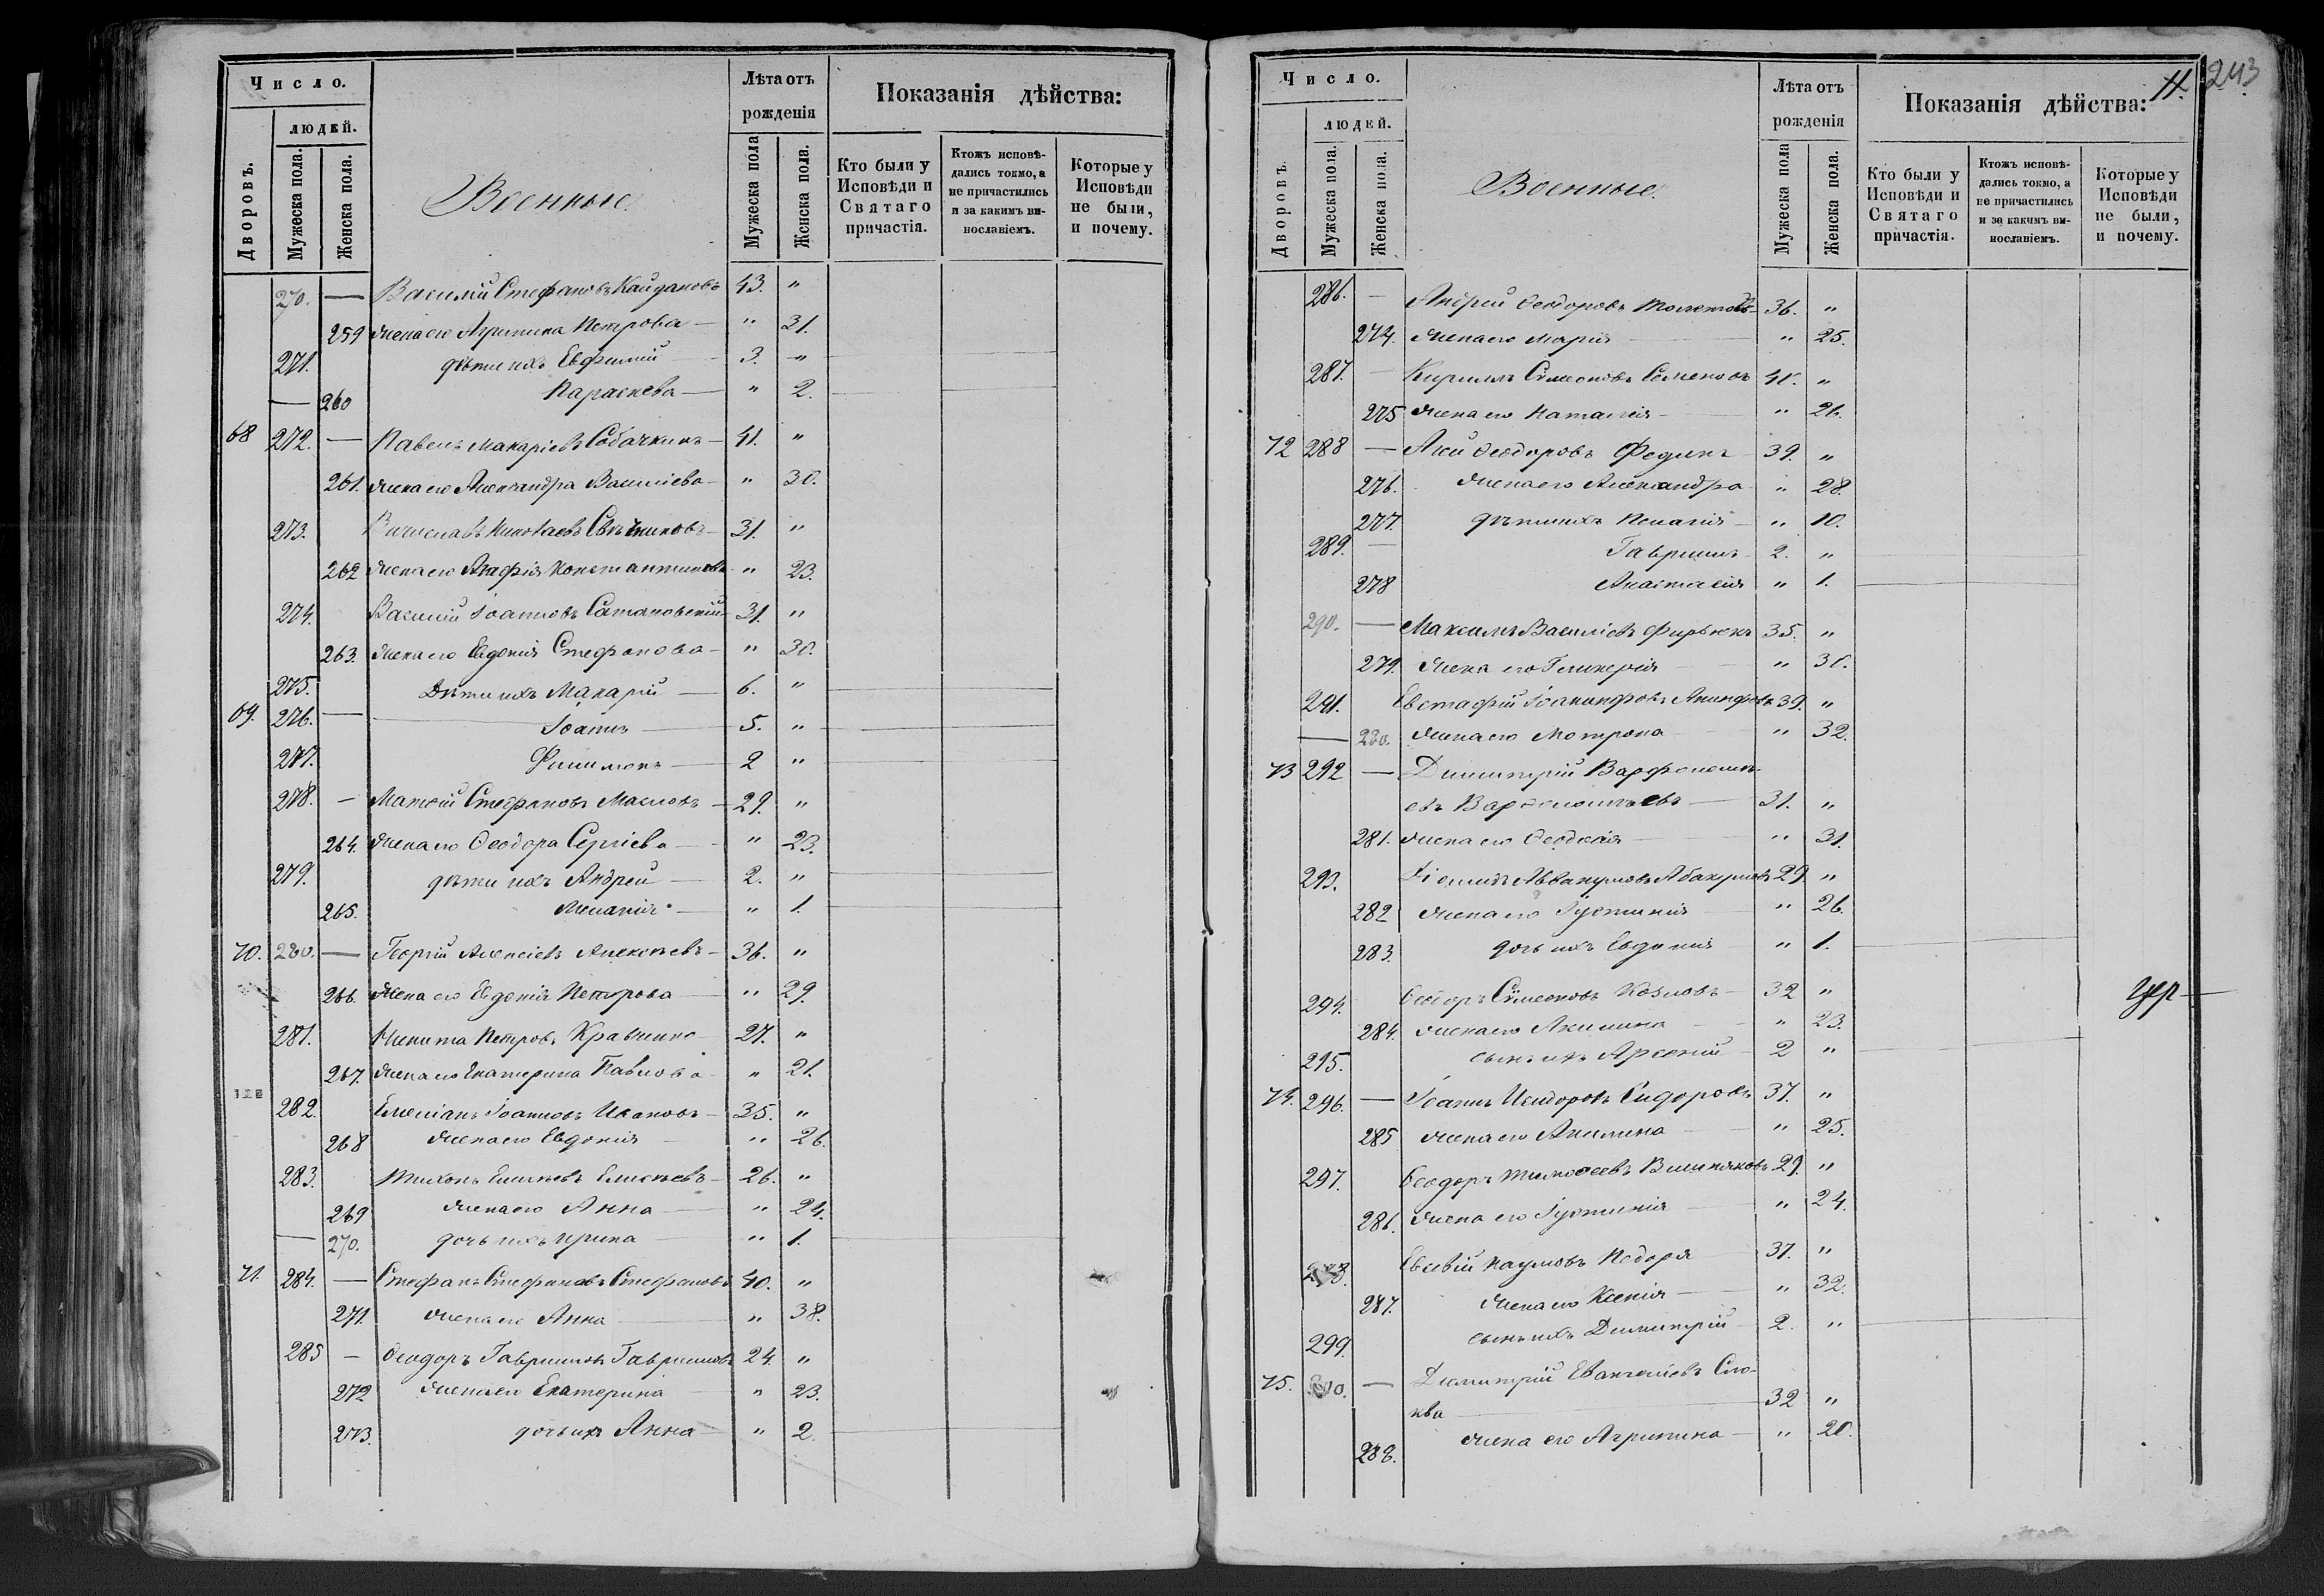 Число.
людей.
Дворовъ.
Мужеска пола.
Женска пола.
Военные.
Лѣта отъ рожденія
Мужеска пола
Женска пола.
Показанія дѣйства:
Кто были у Исповѣди и Святаго причастія.
Ктожъ исповѣ-
дались токмо, а
не причастились
и за какимъ ви-
нословіемъ.
Которые у Исповѣди не были, и почему.
270. — Василій Стефановъ Кайдановъ 43. "
259 жена его Агрипина Петрова — " 31.
271. дѣти ихъ Евфимій 3. "
— 260 Параскева — " 2.
68 272. — Павелъ Макаріевъ Собачкинъ — 41. "
261. жена его Александра Василіева — " 30.
273. Николаевъ 31. "
262 жена его Агафія Константинова " 23.
274. Василій Іоанновъ Сатановскій 31. "
263. жена его Евдокія Стефанова — " 30.
275. Дѣти ихъ Макарій — 6. "
69. 276. — Іоаннъ — 5. "
277. Филимонъ — 2 "
278. — Матѳій Стефановъ Масловъ — 29. "
264. жена его Ѳеодора Сергіева — " 23.
279. дѣти ихъ Андрей — 2. "
265. Меланія — " 1.
70. 280. — Георгій Алексіевъ Алексѣевъ — 36. "
266. жена его Евдокія Петрова — " 29.
281. Никита Петровъ Кравченко 27. "
267. жена его Екатерина Павлова " 21.
282. Емеліанъ Іоанновъ Ивановъ — 35. "
268 жена его Евдокія " 26.
283. Тихонъ Елисѣевъ Елисѣевъ — 26. "
269 жена его Анна — " 24.
— 270. дочь ихъ Ирина " 1.
71. 284. — Стефанъ Стефановъ Стефановъ 40. "
271. жена его Анна " 38.
285 — Ѳеодоръ Гавриловъ Гавриловъ 24. "
272 жена его Екатерина " 23.
273. дочь ихъ Анна — " 2.
Число.
людей.
Дворовъ.
Мужеска пола.
Женска пола.
Военные.
Лѣта отъ рожденія
Мужеска пола
Женска пола.
Показанія дѣйства:
243
Кто были у Исповѣди и Святаго причастія.
Ктожъ исповѣ-
дались токмо, а
не причастились
и за какимъ ви-
нославіемъ.
Которые у Исповѣди не были, и почему.
286. — Андрей Ѳеодоровъ 36. "
274. жена его Марія " 25.
287. — Кириллъ Симеоновъ Семеновъ 40. "
275 жена его Наталія — " 26.
72 288 — Ѳеодоровъ Фединъ 39. "
276. жена его Александра " 28.
277. дѣти ихъ Пелагія — " 10.
289. — Гавріилъ 2. "
278 Анастасія " 1.
290. — Максимъ Василіевъ 35. "
279. жена его Гликерія " 30.
291. Евстафій 39. "
— 280. жена его Мотрона " 32.
73 292 — Димитрій Варфоломе-
евъ Варѳоломѣевъ — 31. "
281. жена его Ѳеодосія " 31.
293. Діомидъ Аввакумовъ Абакумовъ 29. "
282 жена его Іустинія " 26.
283. дочь ихъ Евдокія " 1.
294. Ѳеодоръ Симеоновъ Козловъ — 32 "
284. жена его Акилина " 23.
295. сынъ ихъ Арсеній 2 "
74. 296. — Іоаннъ Исидоровъ Сидоровъ 37. "
285 жена его Акилина " 25.
297. Ѳеодоръ Тимоѳеевъ Вишняковъ 29. "
286. жена его Іустинія " 24.
298. Евсевій Наумовъ 37. "
287. жена его Ксенія — " 32.
299. сынъ ихъ Димитрій 2. "
75. 300. — Димитрій Евангеліевъ Сло-
ква — 32 "
288. жена его Агрипина — " 20.